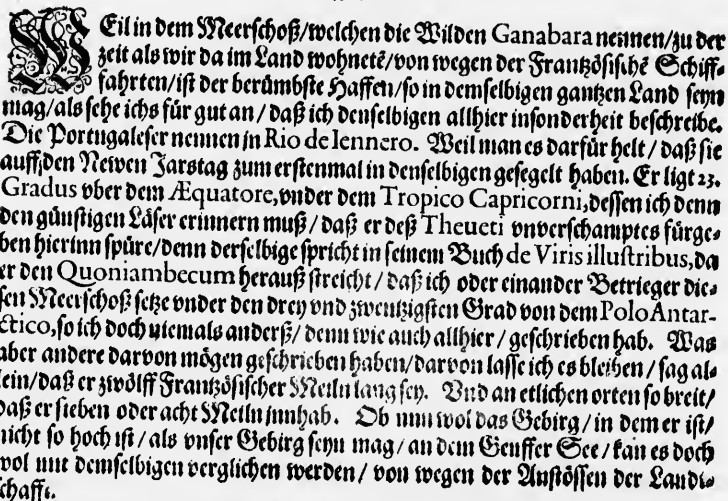 WEil in dem Meerschoß/welchen die Wilden Ganabara nennen/zu der
zeit als wir da im Land wohnetē/von wegen der Frantzösischē Schiff-
fahrten/ist der berümbste Haffen/so in demselbigen gantzen Land seyn
mag/als sehe ichs für gut an/daß ich denselbigen allhier insonderheit beschreibe.
Die Portugaleser nennen jn Rio de Iennero. Weil man es darfür helt/daß sie
auff den Newen Jarstag zum erstenmal in denselbigen gesegelt haben. Er ligt 23.
Gradus vber dem Æquatore, vnder dem Tropico Capricorni, dessen ich denn
den günstigen Läser erinnern muß/daß er deß Theueti vnverschamptes fürge-
ben hierinn spüre/denn derselbige spricht in seinem Buch de Viris illustribus, da
er den Quoniambecum herauß streicht/daß ich oder einander Betrieger die-
sen Meerschoß setze vnder den drey vnd zwentzigsten Grad von dem Polo Antar-
ctico, so ich doch niemals anderß/denn wie auch allhier/geschrieben hab. Was
aber andere darvon mögen geschrieben haben/darvon lasse ich es bleiben/sag al-
lein/daß er zwölff Frantzösischer Meiln lang sey. Vnd an etlichen orten so breit/
daß er sieben oder acht Meiln innhab. Ob nun wol das Gebirg/in dem er ist/
nicht so hoch ist/als vnser Gebirg seyn mag/an dem Genffer See/kan es doch
wol mit demselbigen verglichen werden/von wegen der Anstössen der Landt-
schafft.